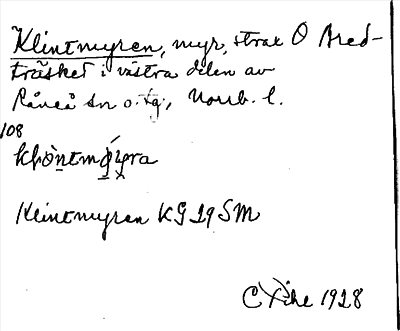 Klintmyren, myr, strax O Ared-
träsket i västra delen av
Råneå sn o. tg., Norrb. l.
108
Klintmyren KG 29 SM
1928